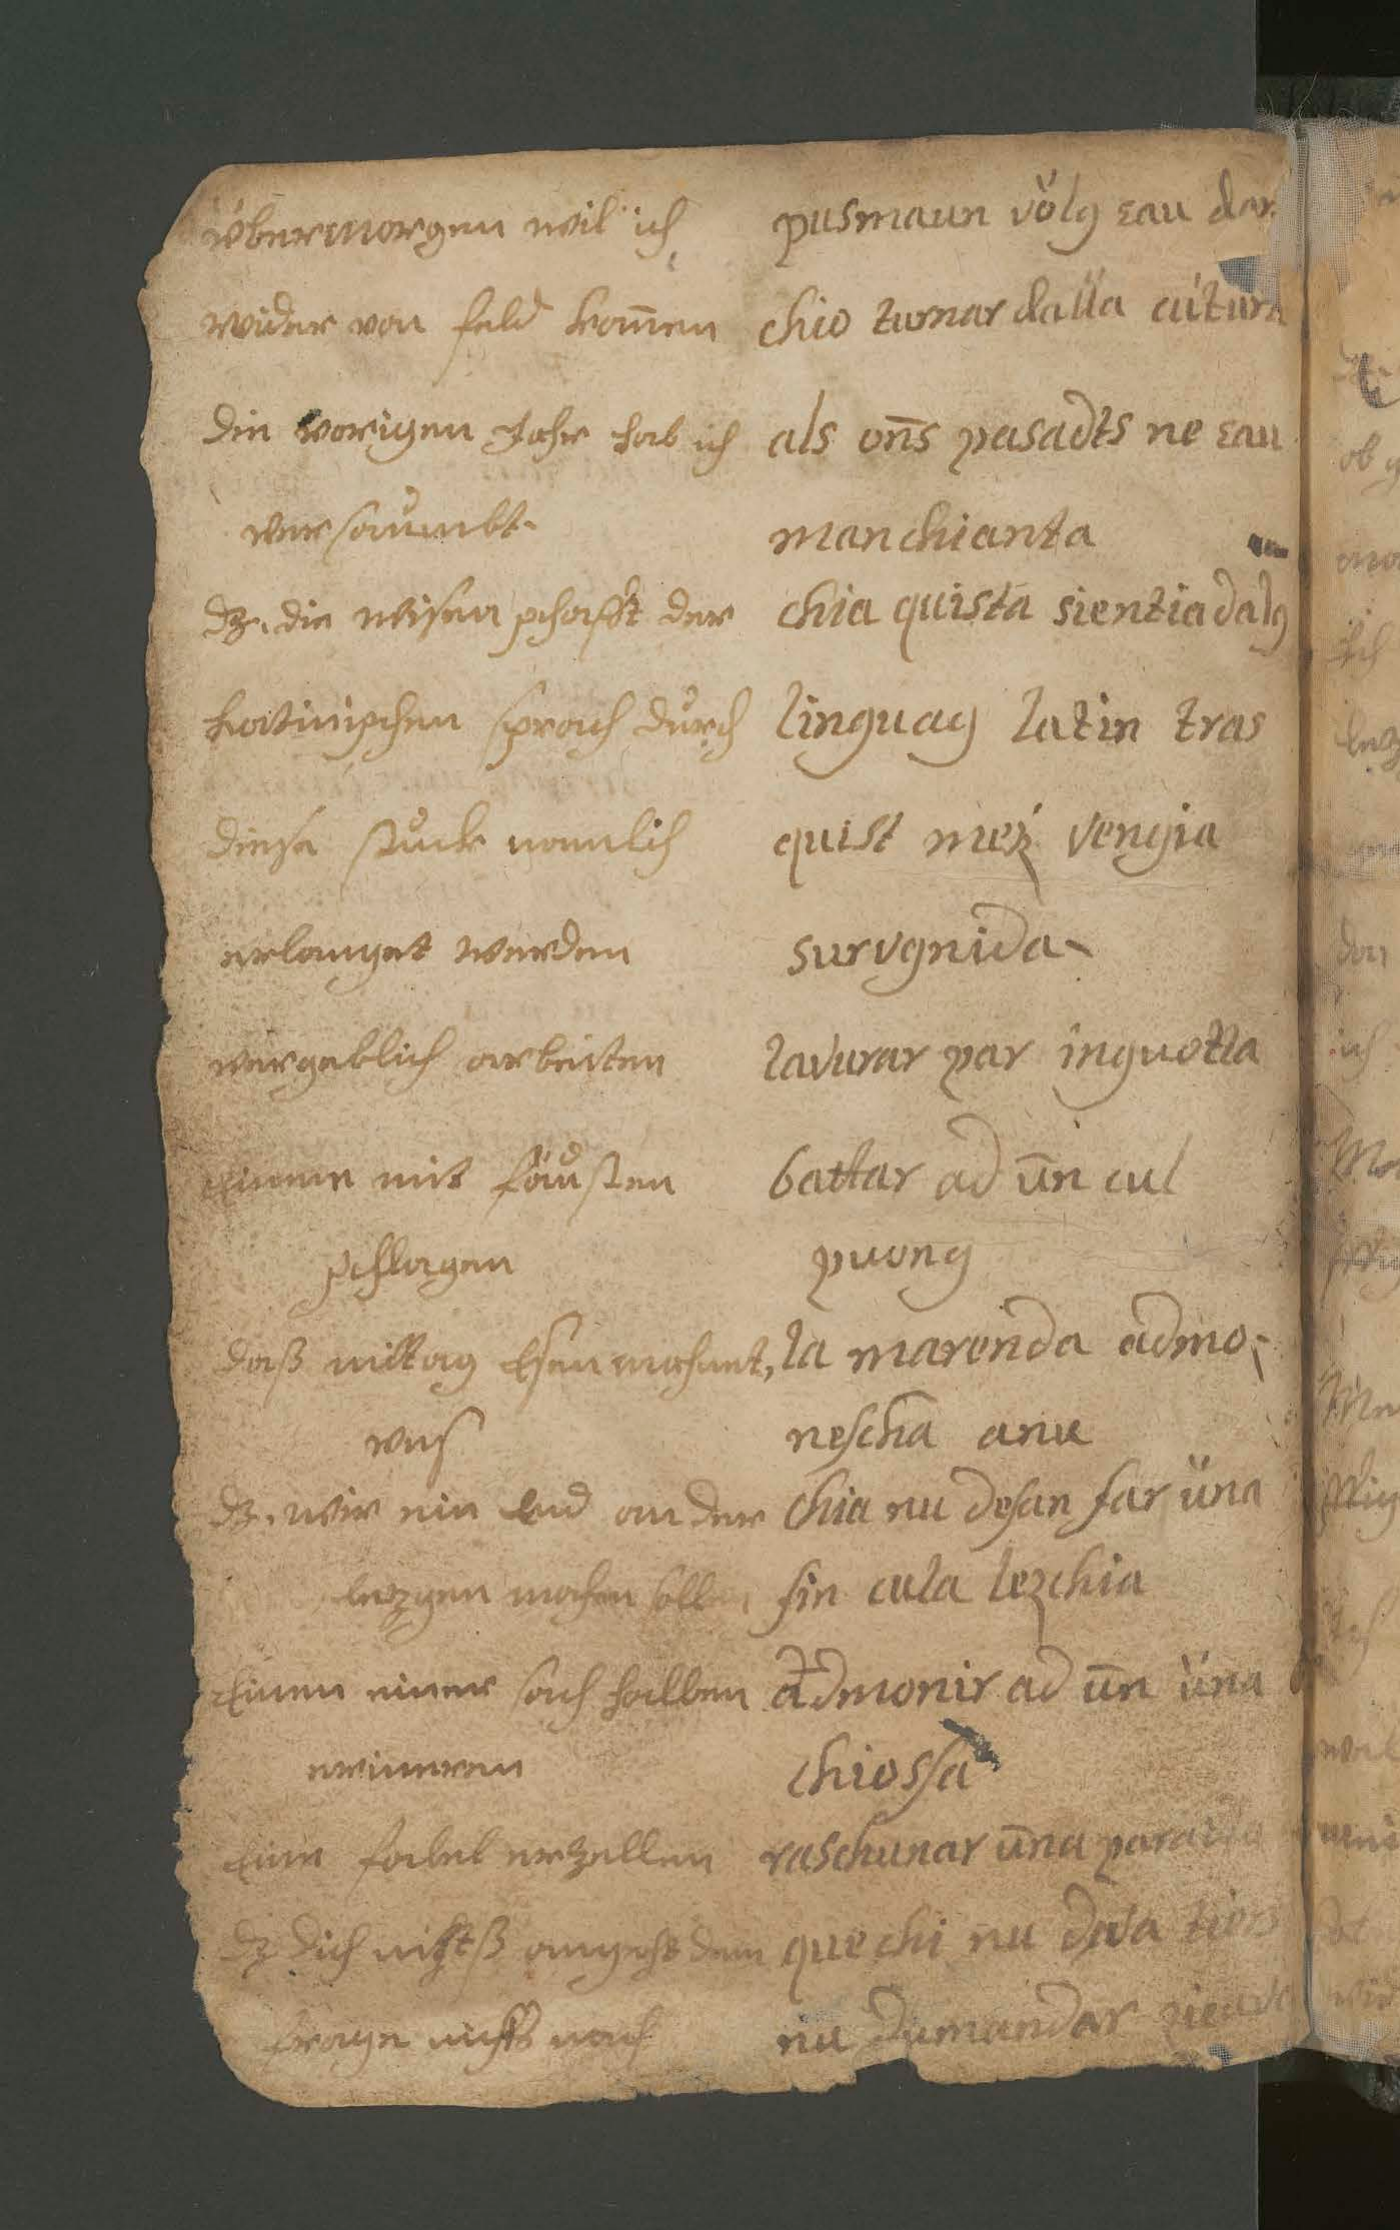 übermorgen wil ich pusmaun völg eau dar
wider von feld kom̄en chio turnar dalla cútura
die vorigen Jahr hab ich als on̄s pasadts ne eau
versaumbt. manchianta
dz. die wisenschafft der chia quista sientia dalg
Latinischen sprach durch linguag latin tras
diese stuck nemlich quist mez vengia
erlanget werden survgnida
vergeblich arbeiten lavurar par inguotta
Einen mit fäusten battar ad ūn cul
schlagen puong
daß mittag Esen mahnet, la marenda admo-
uns nescha anu
dz. wir ein End an der chia nu desan far üna
lezgen machen sollen fin cula lezchia
Einen einer sach halben Admonir ad ūn üna
erineren chiossa
Eine fabel erzellen raschunar ūna
dz dich nichtß angeht dem que chi nu
frage nichts nach nu dumandar